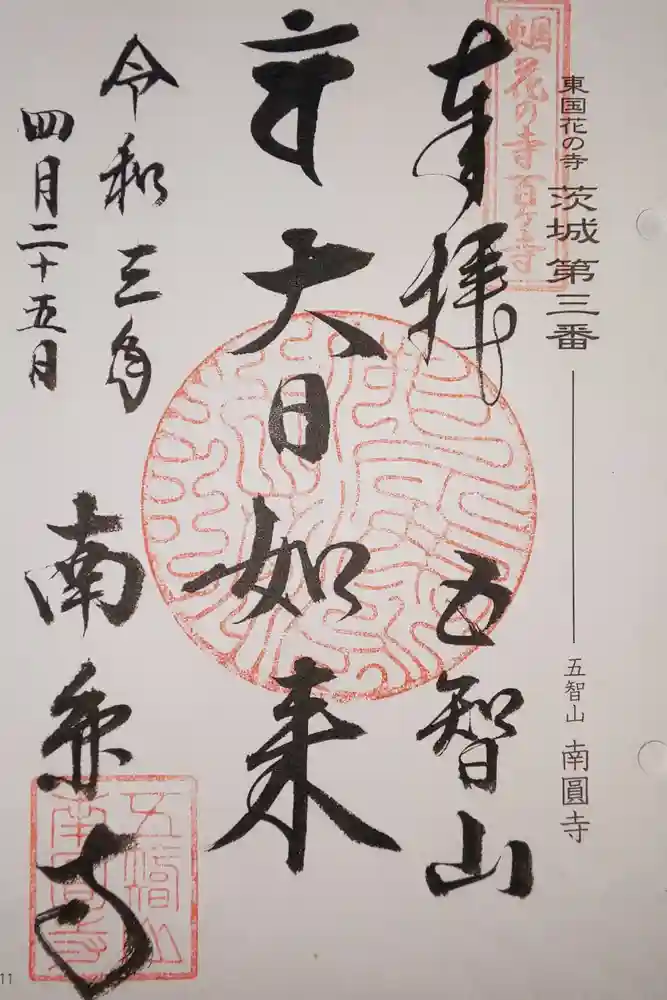 東国花の寺 茨城第三番
五智山 南圓寺
奉拝 五智山
大日如来
令和三年
四月二十五日
南圓寺
花の寺百ケ寺
11